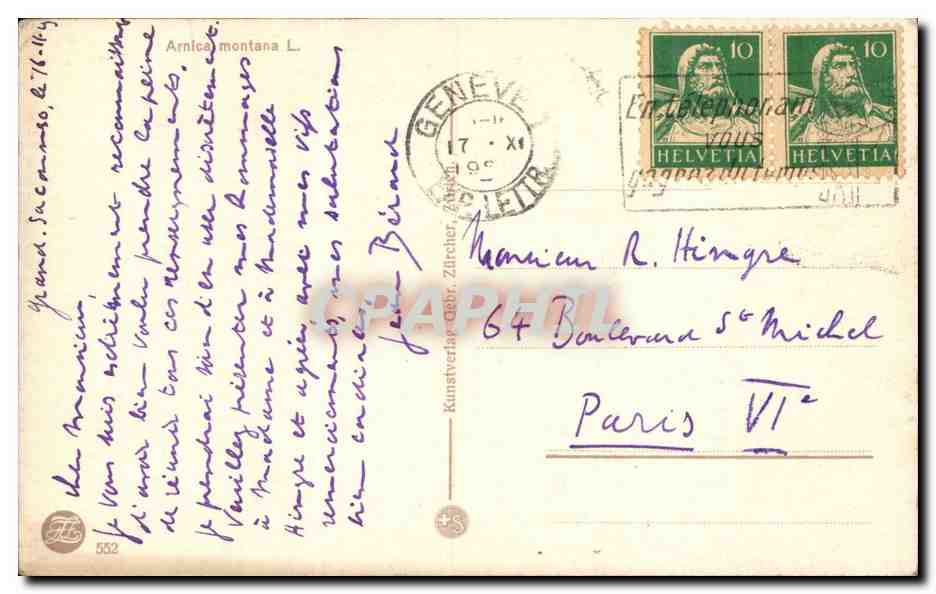 Arnica montana L.
Grand-Saconnex, le 16-11-
Cher Monsieur,
Je vous suis extrêmement reconnaissant
d'avoir bien voulu prendre la peine
de réunir tous ces renseignements.
Je prendrai soin d'en user discrètement.
Veuillez présenter mes hommages
à Madame et à Mademoiselle
Hingre et agréer avec mes vifs
remerciements, mes salutations
bien cordiales
Jean Bérard
552
Kunstverlag Gebr. Zürcher, Zürich.
+S
GENÈVE
17. XI
10 10
HELVETIA HELVETIA
En téléphonant
vous
CPARHTL
Monsieur R. Hingre
64 Boulevard St Michel
Paris VIe